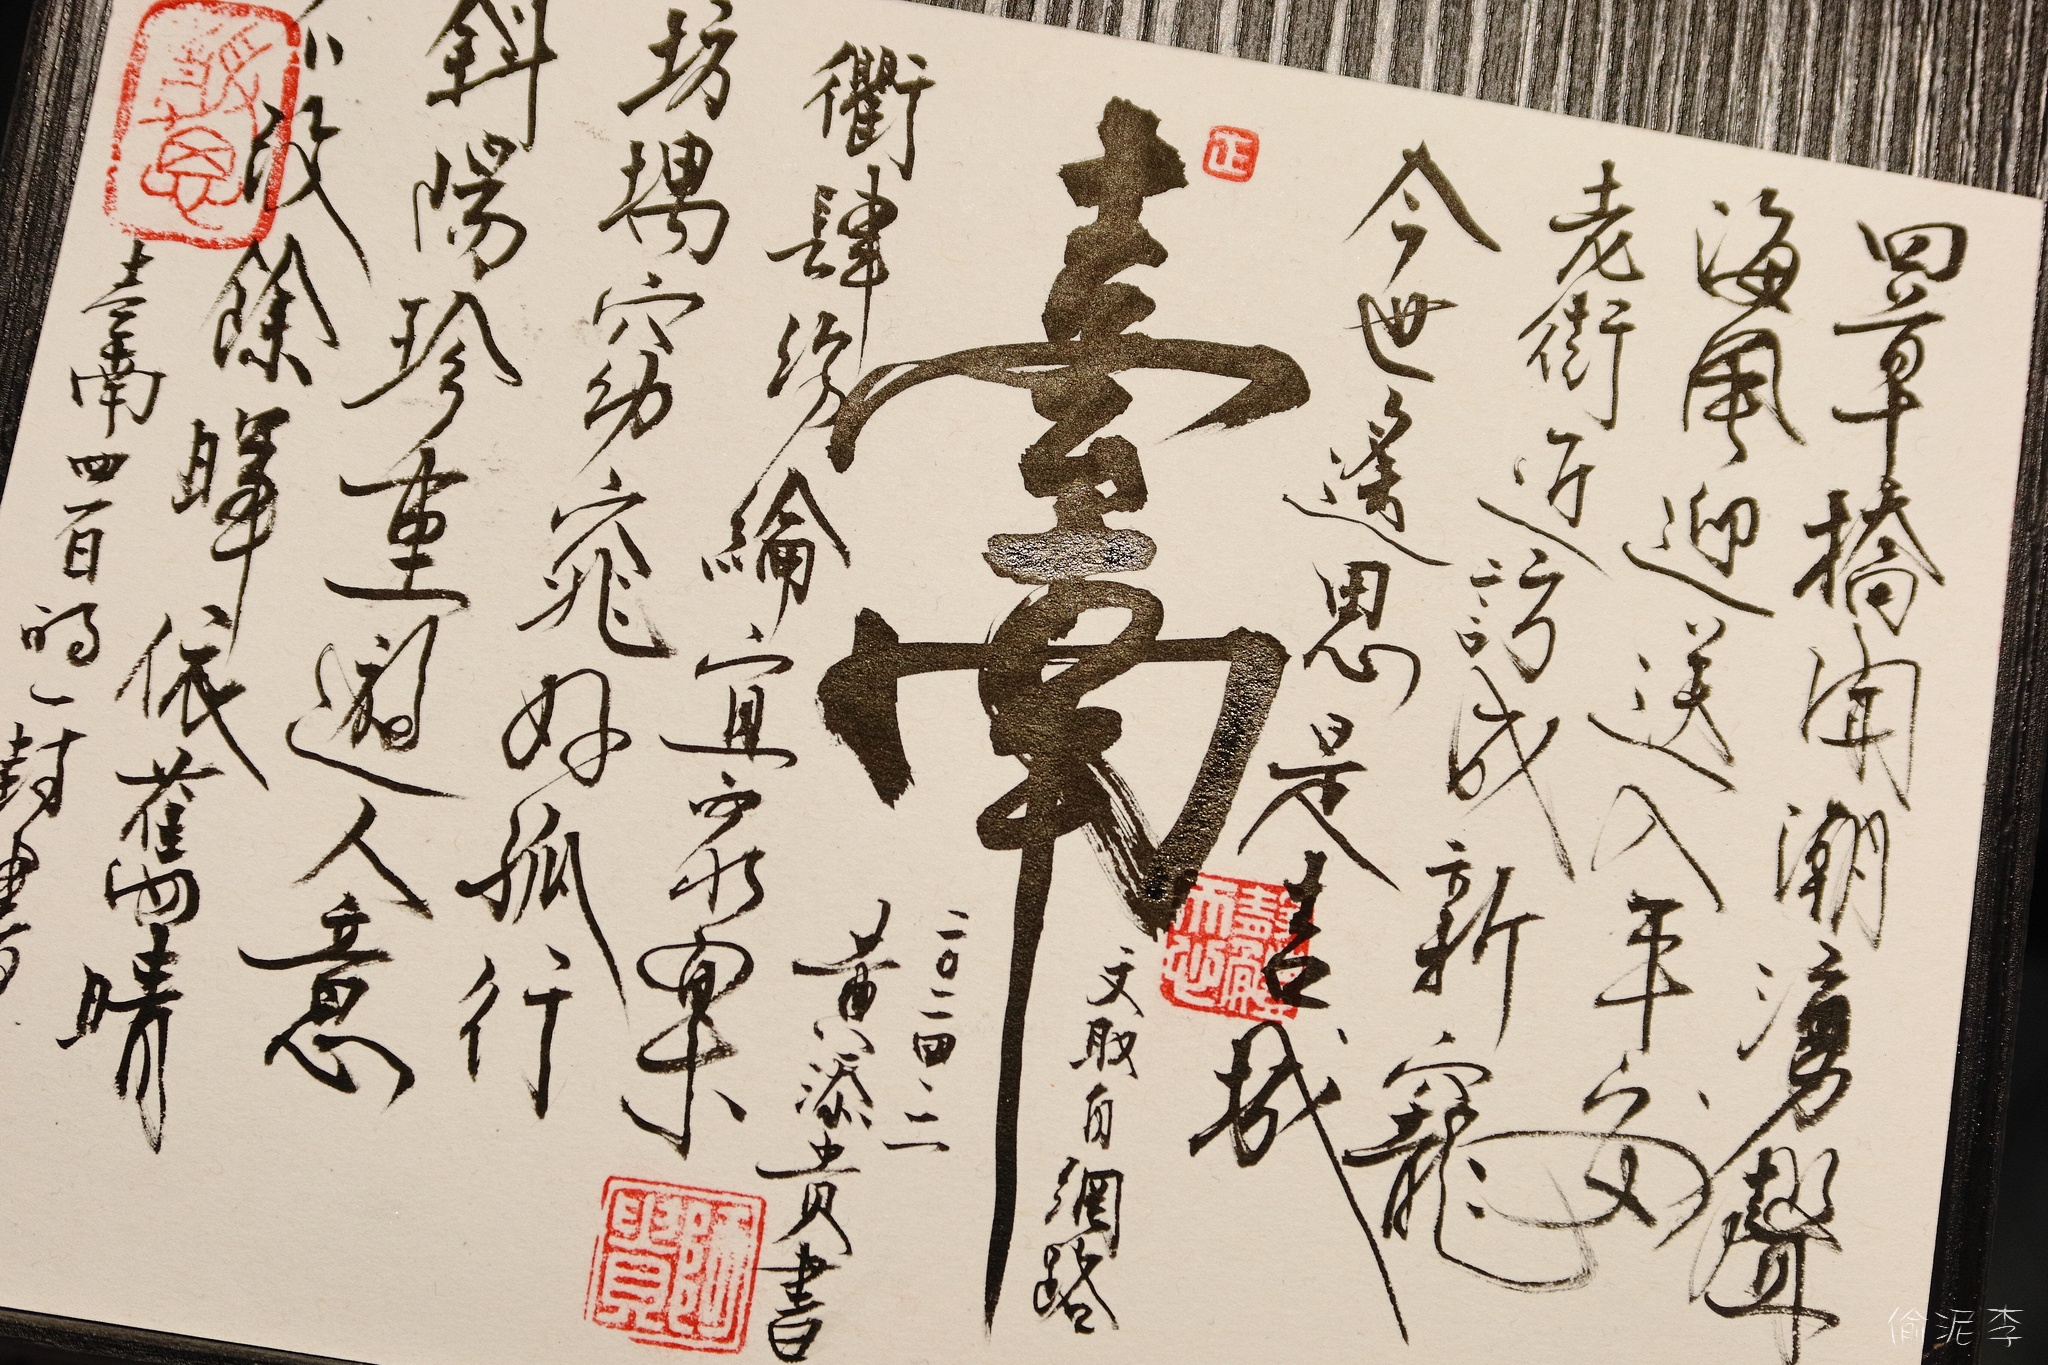 四草橋聞潮湧聲
海風迎送入年安
老街近訪成新寵
今世遙思是吉城
正
臺南
文取自網路
二〇二四.二
黃添貴書
衢肆紛綸宜
坊堣穴幼窕好孤行
斜陽珍重遊人意
段餘暉依舊晴
臺南四百的一封書
偷泥李